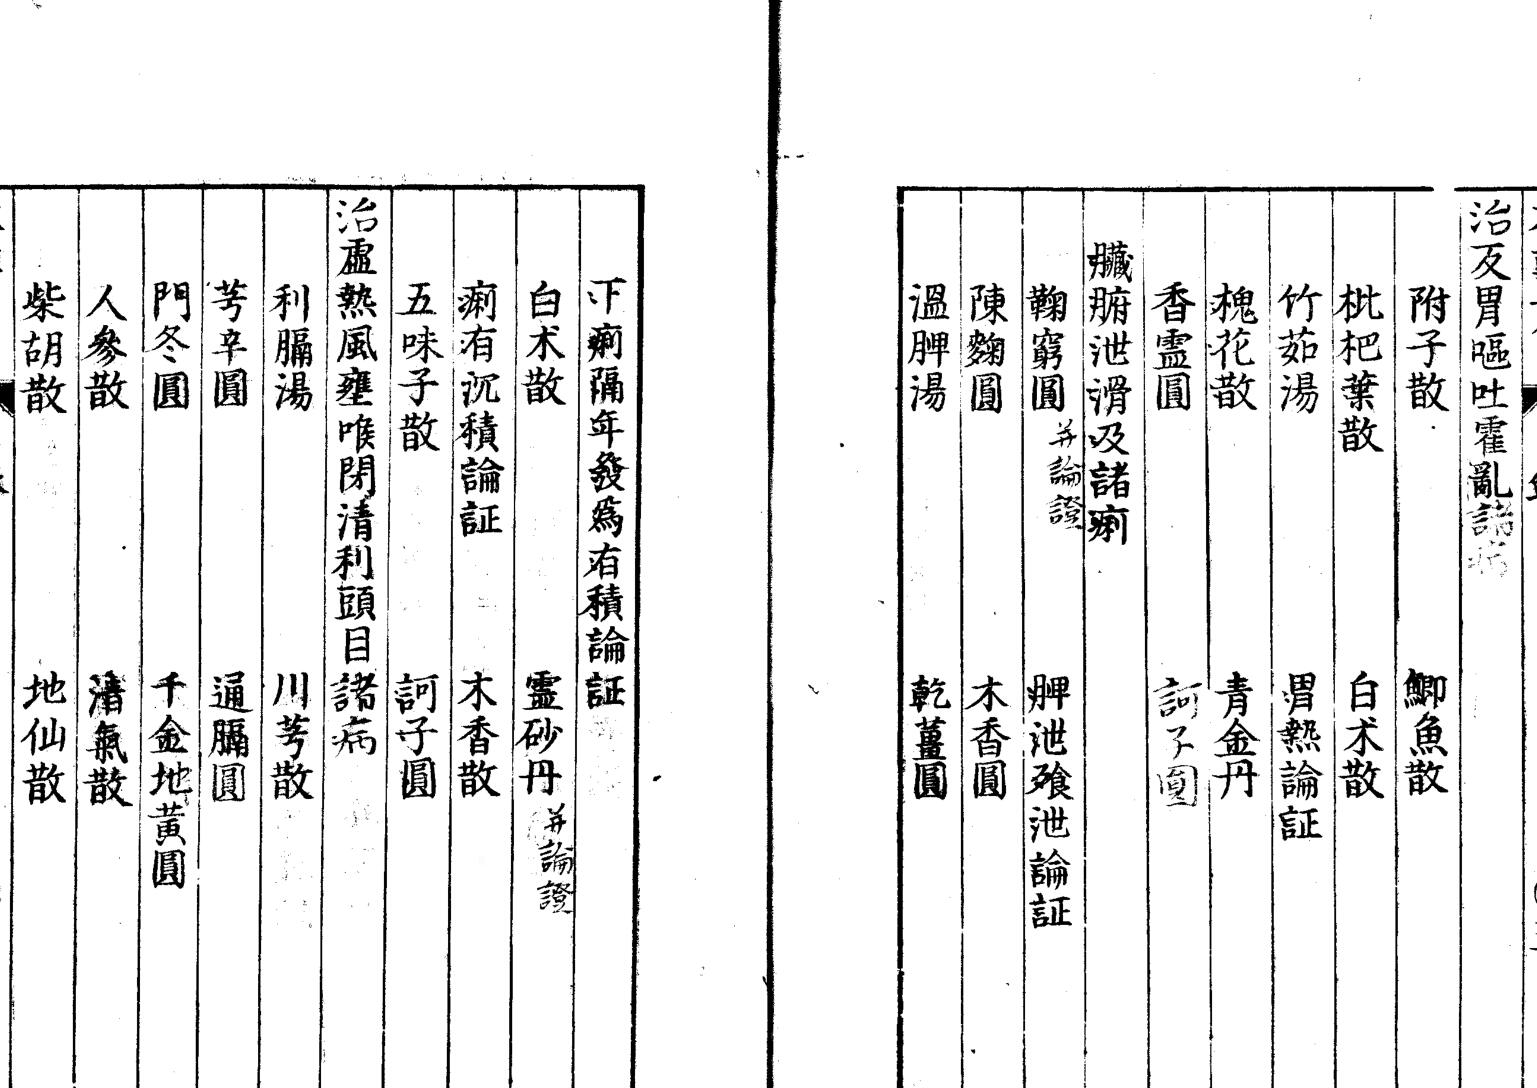 治反胃嘔吐霍亂諸病
附子散 鯽魚散
枇杷葉散 白术散
竹茹湯 胃熱論証
槐花散 青金丹
香靈圓 訶子圓
臟腑泄滑及諸痢
鞠窮圓并論證 脾泄飱泄論証
陳麴圓 木香圓
溫脾湯 乾薑圓
下痢隔年發爲有積論証
白术散 靈砂丹并論證
痢有沉積論証 木香散
五味子散 訶子圓
治虛熱風壅喉閉清利頭目諸病
利膈湯 川芎散
芎辛圓 通膈圓
門冬圓 千金地黄圓
人參散 清氣散
柴胡散 地仙散